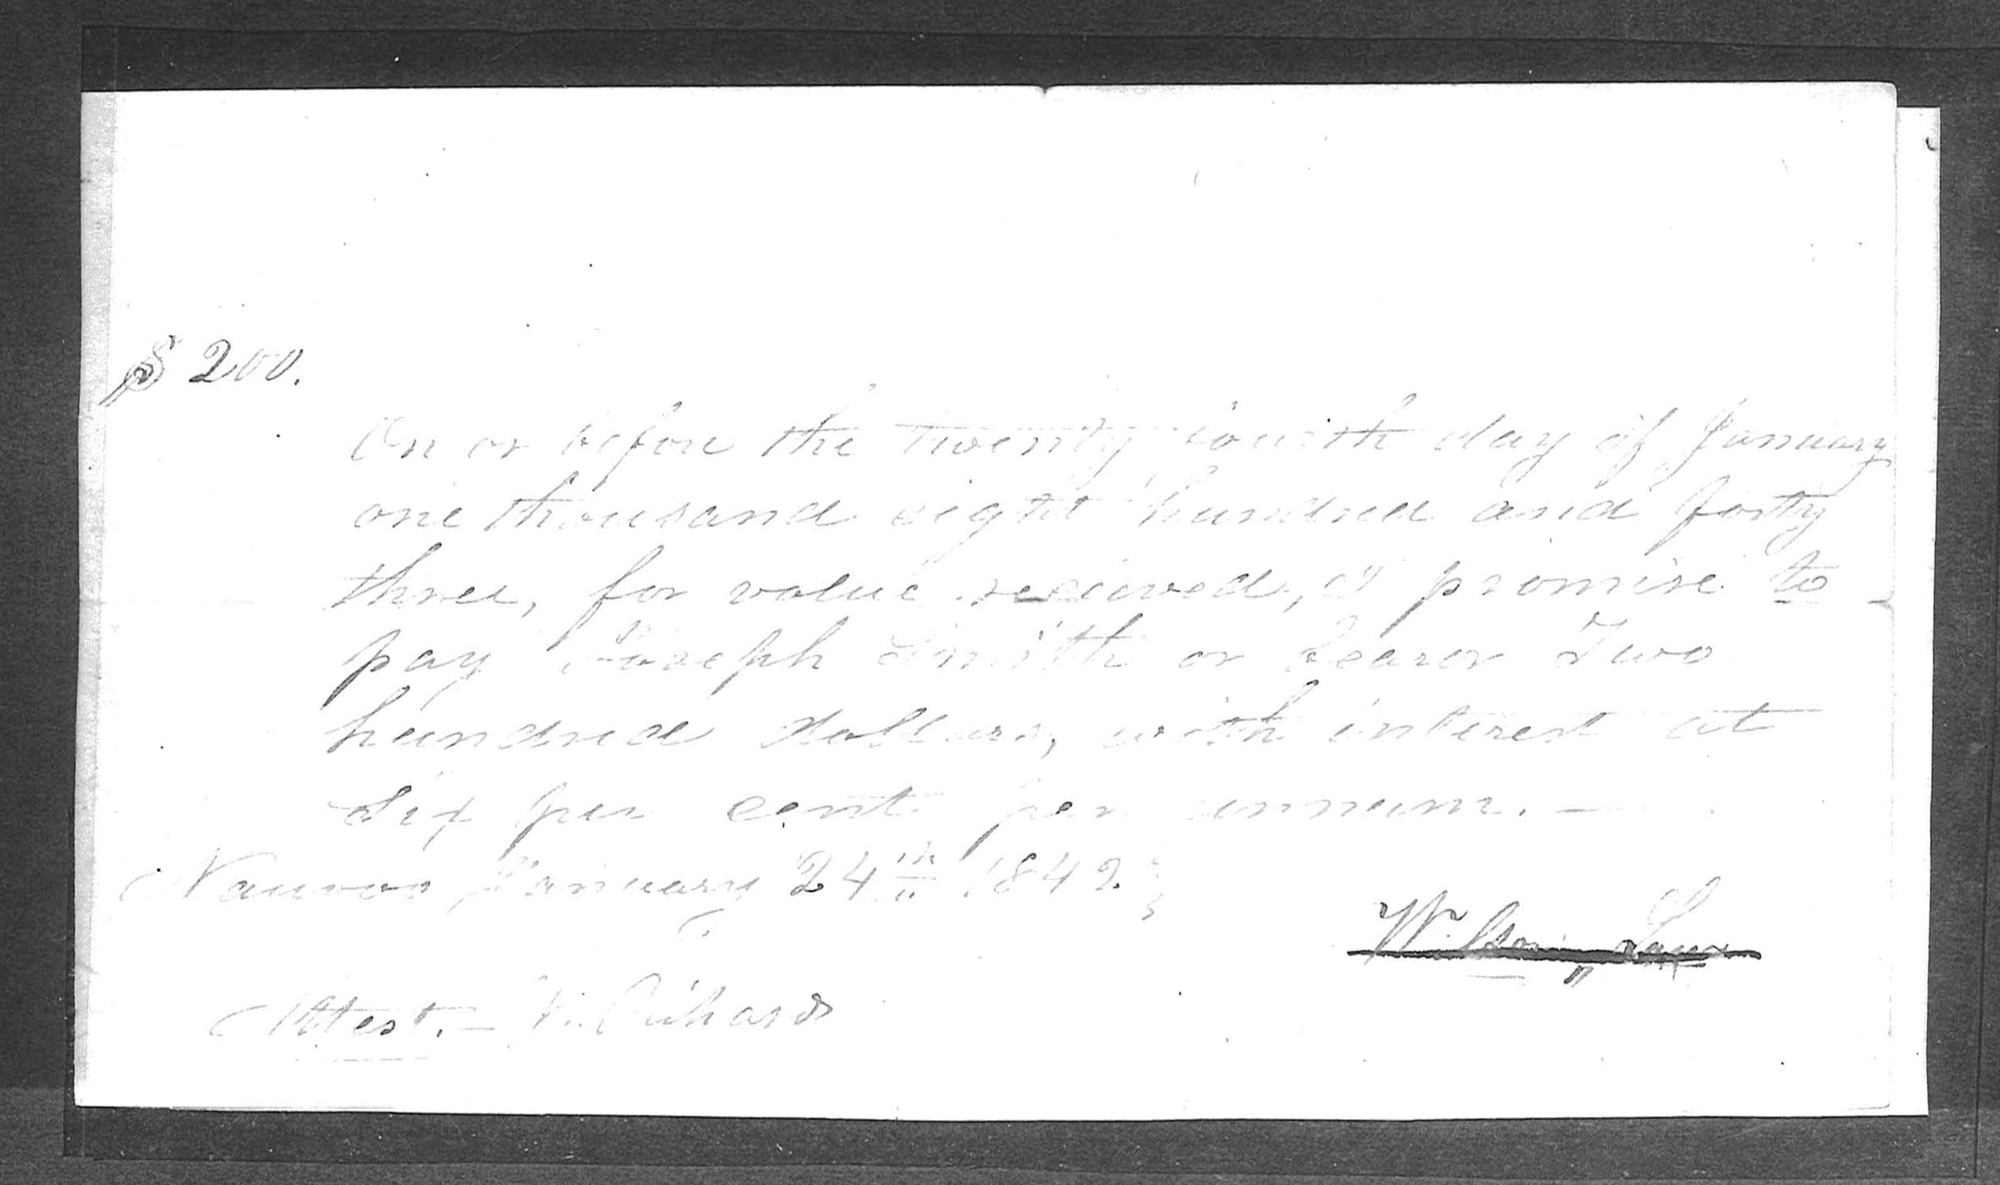 $ 200.
On or before the twenty fourth day of January
one thousand eight hundred and forty
three, for value recieved, I promise to
pay Joseph Smith or bearer Two
hundred dollars, with interest at
Six per cent per annum. —
Nauvoo January 24th 1842.
Wilson Law
Attest. — W. Richards